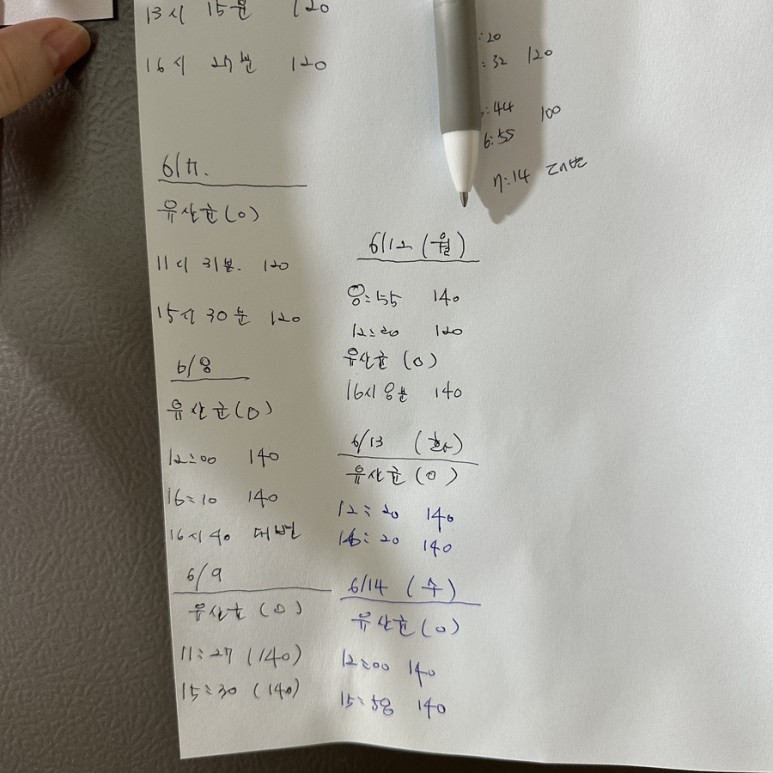 13시 15분 120
16시 27분 120
6/7.
유산균(O)
11시 31분. 120
15시 30분 120
6/8
유산균(O)
12:00 140
16:10 140
16시 40 대변
6/9
유산균 (O)
11:27 (140)
15:30 (140)
:20
:32 120
:44 100
6:55
7:14 대변
6/12 (월)
8:55 140
12:20 120
유산균 (O)
16시 8분 140
6/13 (화)
유산균 (O)
12:20 140
16:20 140
6/14 (수)
유산균(O)
12:00 140
15:58 140